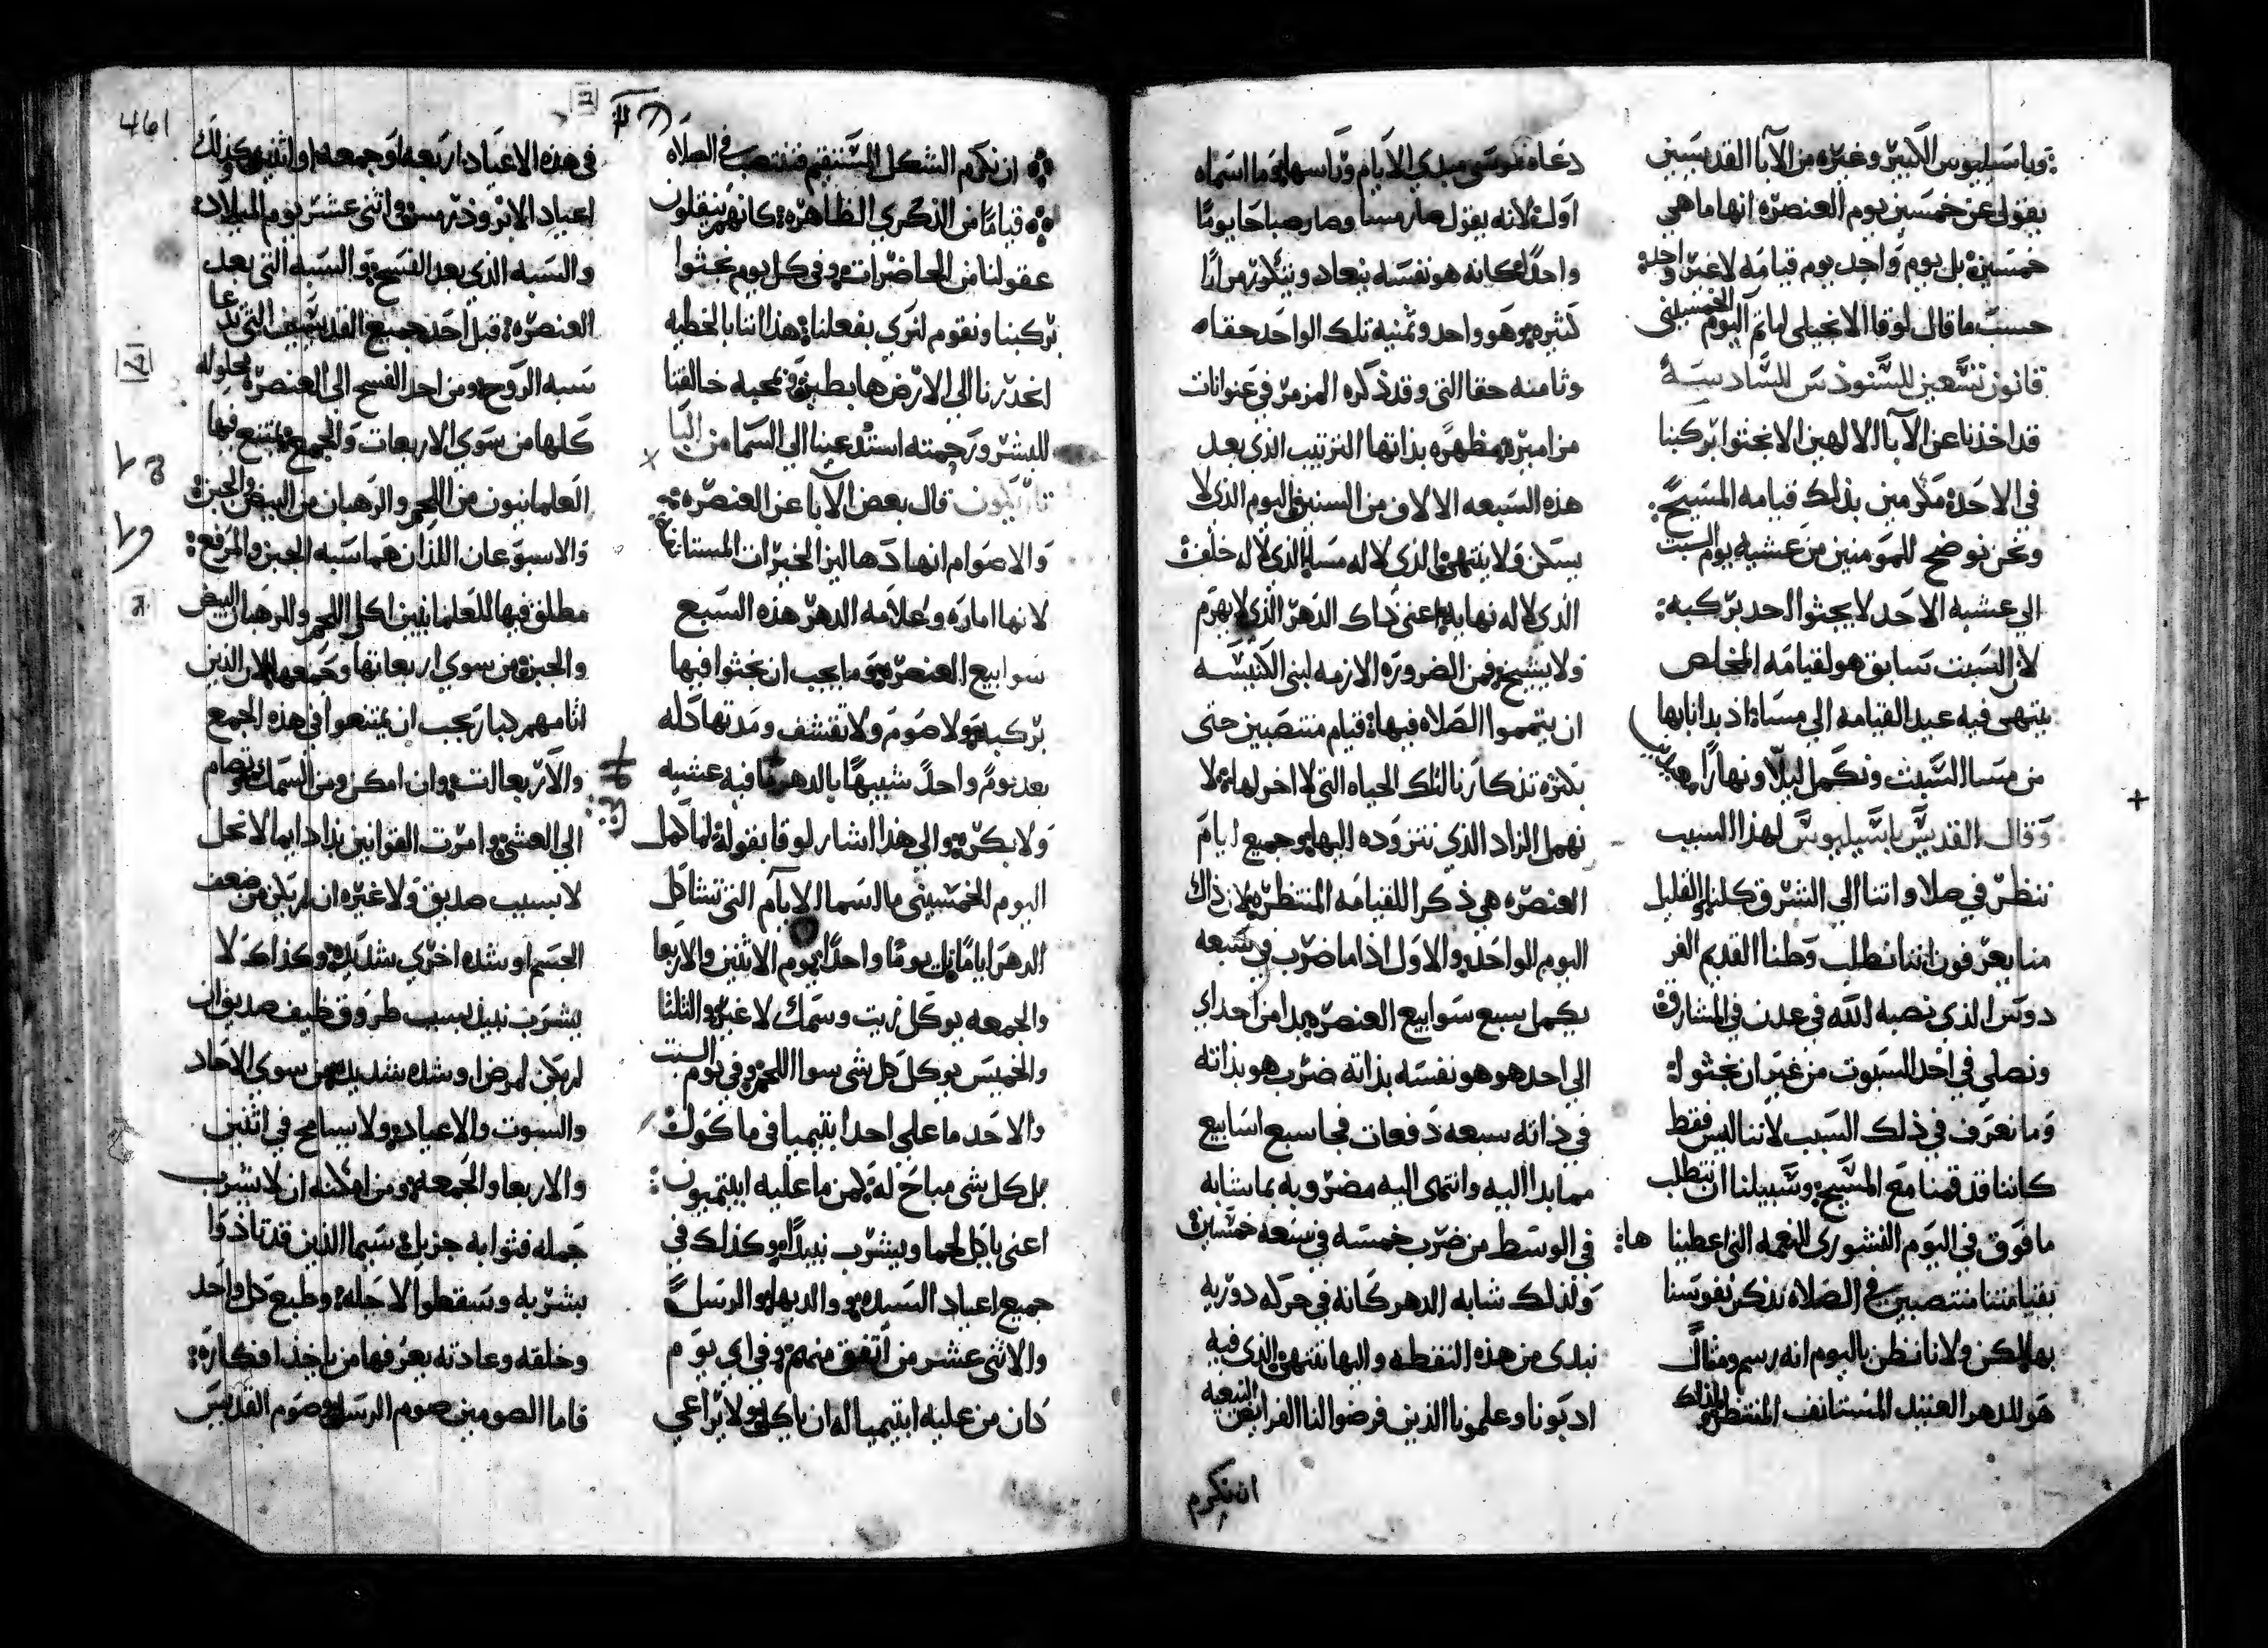 وباسيليوس الكبير وغيره من الابا القديسين
يقول عن خمسين يوم العنصره انها ما هي
خمسين بل يوم واحد يوم قيامه لا غير واحد
حسب ما قال لوقا الانجيلي لما تم اليوم الخمسيني
قانون تسعين للسنودس السادسة
قد اخذنا عن الابا الالهين الا نجثوا بركبنا
في الاحد مكرمين بذلك قيامه المسيح
ونحن نوضح للمومنين من عشيه يوم السبت
الى عشيه الاحد لا يجثوا احد بركبه
لان السبت سابق هو لقيامه المخلص
ينتهي فيه عيد القيامه الي مساه اذ بدانا بها
من مسا السبت ونكمل ليلا ونهارا
وقال القديس باسيليوس لهذا السبب
ننظر في صلاواتنا الى الشرق كلنا والقليل
منا يعرفون اننا نطلب وطننا القديم الفر
دوس الذي نصبه الله في عدن في المشارق
ونصلي في احد السبوت من غير ان نجثوا
وما نعرف في ذلك السبب لاننا ليس فقط
كاننا قد قمنا مع المسيح وسبيلنا ان نتطلب
ما فوق في اليوم النشوري النعمه التي اعطينا ها
بقيامتنا منتصبين في الصلاه نذكر نفوسنا
بها لكن ولانا نظن باليوم انه رسم ومثال
هو للدهر العتيد المستانف المنتظر ولذلك
دعاه موسى مبدي الايام وراسها وما اسماه
اول لانه يقول صار مسا وصار صباحا يوما
واحدا كانه هو نفسه ينعاد ويتكرر مرارا
كثيره وهو واحد وثمنيه تلك الواحد حقا
وثامنه حقا التي وقد ذكره المزمر في عنوانات
مزاميره مظهره بذاتها الترتيب الذي بعد
هذه السبعه الالاف من السنين اليوم الذي لا
يسكن ولا ينتهي الذي لا له مسا الذي لا له خلف
الذي لا له نهايه اعني ذاك الدهر الذي لا يهرم
ولا يشيخ فمن الضروره الازمه لبني الكنيسه
ان يتمموا الصلاه فيها قيام منتصبين حتى
بكثره تذكارنا لتلك الحياه التي لا اخر لها لا
نهمل الزاد الذي نتزوده اليها وجميع ايام
العنصره هي ذكر القيامه المنتظره لان ذاك
اليوم الواحد والاول اذا ما ضرب في سبعه
يكمل سبع سوابيع العنصره يبدا من احداي
الى احد هو هو نفسه بذاته ضرب هو بذاته
في ذاته سبعه دفعات فجا سبع اسابيع
مما بدا اليه وانتهى اليه مضروبه بما شابه
في الوسط من ضرب خمسه في سبعه خمسين
ولذلك شابه الدهر كانه في حركه دوريه
نبدي من هذه النقطه واليها ننتهي الذي فيه
ادبونا وعلمونا الذين فرضوا لنا الفرايض البيعيه
ان نكرم
461
ان نكرم الشكل المستقيم فننتصب في الصلاه
قياما من الذكري الظاهره كانهم ينقلون
عقولنا من الحاضرات وفي كل يوم نجثوا
بركبنا ونقوم لنري بفعلنا هذا اننا بالخطيه
انحدرنا الى الارض هابطين وبمحبه خالقنا
للبشر ورحمته استدعينا الي السما من
قال بعض الابا عن العنصره
والاصوام انها دهاليز الخيرات المستانفه
لانها اماره وعلامه الدهر هذه السبع
سوابيع العنصره وما يجب ان نجثوا فيها
بركبه ولا صوم ولا تقشف ومدتها كله
يعد يوم واحد شبيها بالدهر ما فيه عشيه
ولا بكره والي هذا اشار لوقا بقوله لما كمل
اليوم الخمسيني ما اسما الايام التي تشاكل
الدهر اياما بل يوما واحدا يوم الاثنين والاربعا
والجمعه يوكل زيت وسمك لا غير والثلثا
والخميس يوكل كل شي سوا اللحم وفي يوم السبت
والاحد ما علي احد ابتيميا في ماكول
بل كل شي مباح له لمن ما عليه ابيتيميون
اعني ياكل لحما ويشرب نبيدا وكذلك في
جميع اعياد السيده والديها والرسل
والاثني عشر من اتفق منهم وفي اي يوم
كان من عليه ابيتيميا له ان ياكل ولا يراعي
في هذه الاعياد اربعه او جمعه او اثنين وكذلك
اعياد الابرودرمس واثني عشر يوم الميلاد
والسبه الذي بعد الفسح والسبه التي بعد
العنصره قبل احد جميع القديسين التي تدعا
سبه الروح ومن احد الفسح الى العنصره يحلوله
كلها من سوي الاربعات والجمع يمتنع فيها
العلمانيون من اللحم والرهبان من البيض والجبن
والاسبوعان اللذان هما سبه الجبن والمرفع
مطلق فيها للعلمانيين اكل اللحم وللرهبان البيض
والجبن من سوي اربعاتها وجمعها لان الذين
اثامهم كبار يجب ان يمتنعوا في هذه الجمع
والاربعات وان امكن ومن السمك وتصام
الى العشي وامرت القوانين بذا دايما لا نحل
لا بسبب صديق ولا غيره ان لم يكن من ضعف
الجسم او شده اخري شديده وكذاك لا
يشرب نبيذ بسبب طروق ضيف صديق ان
لم يكن لمرض او شده شديده من سوي الاحاد
والسبوت والاعياد ولا يسامح في اثنين
والاربعا والجمعه ومن امكنه ان لا يشرب
جمله فثوابه جزيل سيما الذين قد تاذوا
بشربه وسقطوا لاجله وطبع كل واحد
وخلقه وعادته يعرفها من ياخذ افكاره
فاما الصومين صوم الرسل وصوم القديس